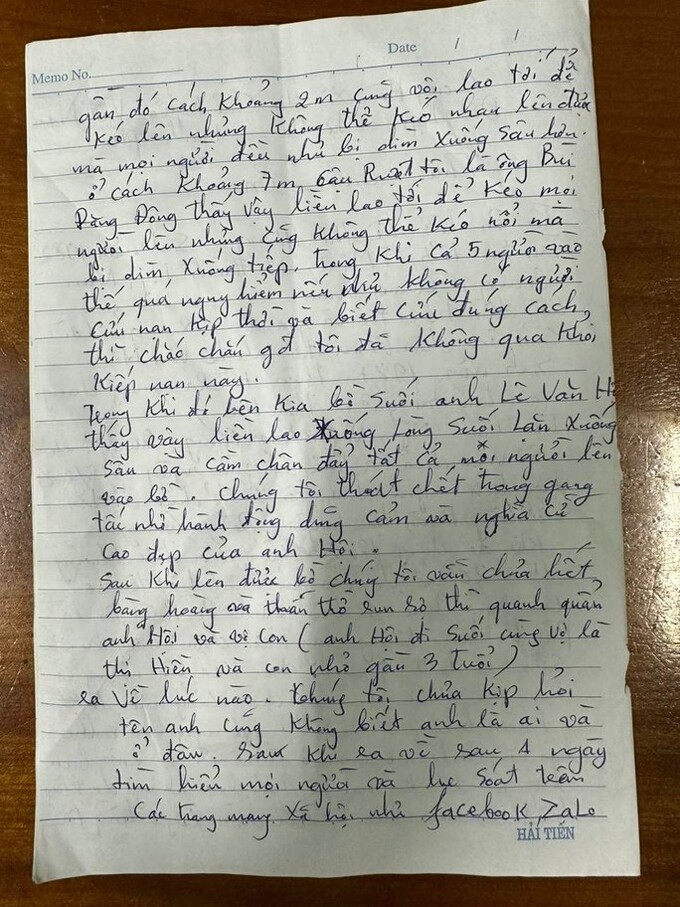 Memo No.
Date / /
gần đó cách khoảng 2m cũng vội lao tới để
kéo lên nhưng không thể kéo nhau lên được
mà mọi người đều như bị dìm xuống sâu hơn.
ở cách khoảng 7m cậu Ruột tôi là ông Bùi
Đăng Đông thấy vậy liền lao tới để kéo mọi
người lên nhưng cũng không thể kéo nổi mà
bị dìm xuống tiếp. Trong khi cả 5 người vào
thế quá nguy hiểm nếu như không có người
cứu nạn kịp thời và biết cứu đúng cách,
thì chắc chắn gđ tôi đã không qua khỏi
kiếp nạn này.
Trong khi đó bên kia bờ suối anh Lê Văn
thấy vậy liền lao xuống lòng suối lặn xuống
sâu và cầm chân đẩy tất cả mọi người lên
vào bờ. Chúng tôi thoát chết trong gang
tấc nhờ hành động dũng cảm và nghĩa cử
cao đẹp của anh Hôi.
Sau khi lên được bờ chúng tôi vẫn chưa hết
bàng hoàng và run sợ thì quanh quẩn
anh Hội và vợ con (anh Hội đi suối cùng vợ là
thị Hiền và con nhỏ gần 3 tuổi)
ra về lúc nào. chúng tôi chưa kịp hỏi
tên anh cũng không biết anh là ai và
ở đâu. sau khi ra về sau 4 ngày
tìm hiểu mọi người và lục soát trên
các trang mạng xã hội như facebook, Zalo
HẢI TIẾN